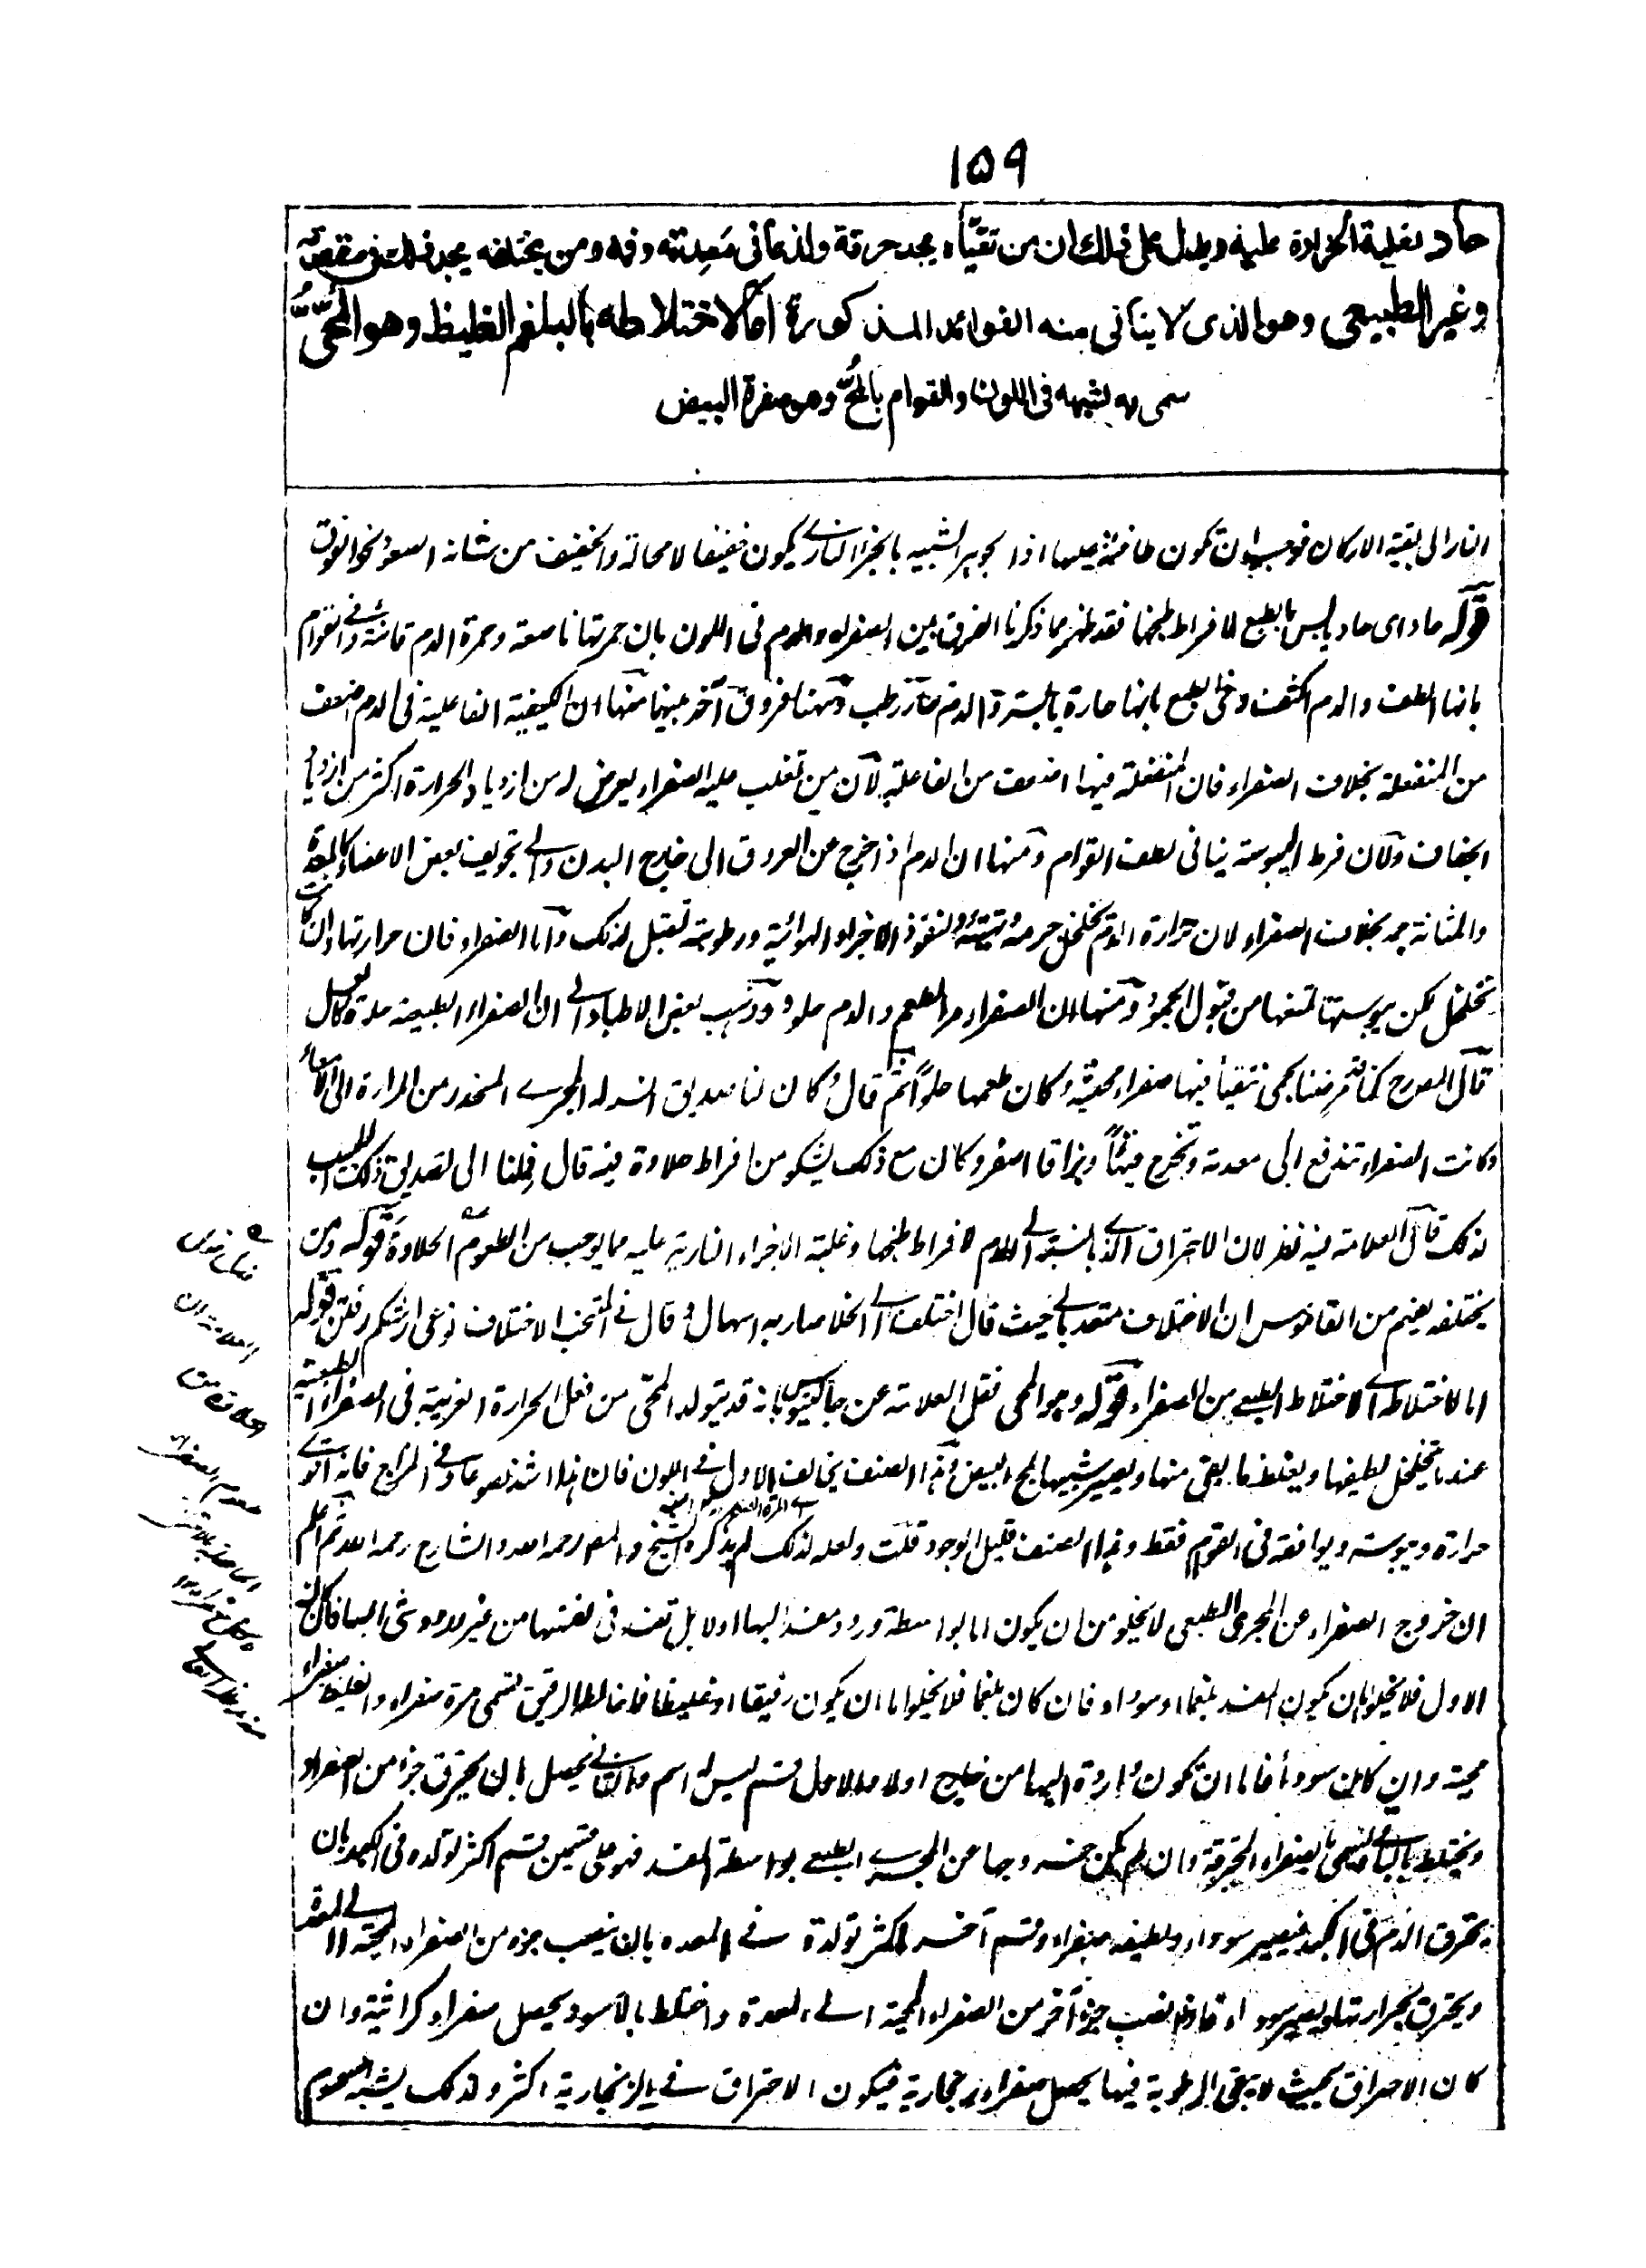 ١٥٩
حاد لغلبة الحرارة عليه ويدل على ذلك ان من تقيأه يجد حرقة ولذعا فى معدته وفمه ومن يختلفه يجد ذلك فى مقعدته
وغير الطبيعى وهو الذى لا يتأتى منه الفوائد المذكورة اما لاختلاطه بالبلغم الغليظ وهو المحّىّ
سمى به لشبهه فى اللون والقوام بالمُحّ وهو صفرة البيض
النار الى بقية الاركان فوجب ان تكون طافئة عليها اذ الجوهر الشبيه بالجزء النارى يكون خفيفا لا محالة والخفيف من شانه الصعود نحو الفوق
قوله حاد اى حاد يابس بالطبع لافراط طبخها فقد ظهر مما ذكرنا الفرق بين الصفراء والدم فى اللون بان حمرتها ناصعة وحمرة الدم قانئة وفى القوام
بانها الطف والدم اكثف وفى الطبع بانها حارة يابسة والدم حار رطب وههنا فروق آخر بينهما منها ان الكيفية الفاعلية فى الدم اضعف
من المنفعلة بخلاف الصفراء فان المنفعلة فيها اضعف من الفاعلة لان من تغلب عليه الصفراء يعرض له من ازدياد الحرارة اكثر من ازدياد
الجفاف ولان فرط اليبوسة ينافى لطف القوام ومنها ان الدم اذا خرج عن العروق الى خارج البدن والى تجويف بعض الاعضاء كالمعدة
والمثانة جمد بخلاف الصفراء لان حرارة الدم تخلخل جرمه وتهيئه لنفوذ الاجزاء الهوائية ورطوبته تقبل لذلك واما الصفراء فان حرارتها وان كانت
تخلخل لكن يبوستها تمنعها من قبول الجمود ومنها ان الصفراء مر الطعم والدم حلو وذهب بعض الاطباء الى ان الصفراء الطبيعية حلوة كالعسل
قال المصرح كنا قد مرضنا بحمى نتقيأ فيها صفراء محية وكان طعمها حلوا ثم قال وكان لنا صديق انسد له المجرى المنحدر من المرارة الى الامعاء
وكانت الصفراء تندفع الى معدته وتخرج قيئا وبزاقا اصفر وكان مع ذلك يشكو من افراط حلاوة فيه قال فملنا الى تصديق ذلك الطبيب
لذلك قال العلامة فيه نظر لان الاحتراق الذى بالنسبة الى الدم لافراط طبخها وغلبة الاجزاء النارية عليه مما يوجب من الطعوم الحلاوة قوله ومن
يختلفه يفهم من القاموس ان الاختلاف متعد بالى حيث قال اختلف الى الخلا صار به اسهال وقال فى المنتخب الاختلاف نوعى از شكم رفتن قوله
اما لاختلاطه اى لاختلاط الطبيعى من الصفراء قوله وهو المحى نقل العلامة عن جالينوس بانه قد يتولد المحى من فعل الحرارة الغريبة فى الصفراء الطبيعية
عندما يتخلخل لطيفها ويغلظ ما بقى منها ويصير شبيها بمح البيض وهذا الصنف يخالف الاول فى اللون فان هذا اشد نصوعا وفى المزاج فانه اقوى
حرارة ويبوسة ويوافقه فى القوام فقط وهذا الصنف قليل الوجود قلت ولعله لذلك لم يذكره الشيخ والمص رحمه الله والشارح رحمه الله ثم اعلم
ان خروج الصفراء عن المجرى الطبيعى لا يخلو من ان يكون اما بواسطة ورود مفسد اليها اولا بل تفسد فى نفسها من غير ورود شئ اليها فان كان
الاول فلا يخلو اما ان يكون المفسد بلغما او سوداء فان كان بلغما فلا يخلو اما ان يكون رقيقا او غليظا فالمخالط الرقيق تسمى مرة صفراء والغليظ صفراء
محية وان كان سوداء فاما ان تكون واردة اليها من خارج اولا والاول قسم ليس له اسم والثانى يحصل بان يحترق جزء من الصفراء
ويختلط بالباقى وتسمى بالصفراء المحترقة وان لم يكن خروجها عن المجرى الطبيعى بواسطة المفسد فهو على قسمين قسم اكثر تولده فى الكبد بان
يحترق الدم فى الكبد فيصير سوداء ولطيفه صفراء وقسم آخر اكثر تولده فى المعدة بان ينصب جزء من الصفراء المحية الى المعدة
ويحترق بحرارتها ويصير سوداء فاذا انصب جزء آخر من الصفراء المحية الى المعدة واختلط بالاسود يحصل صفراء كراثية وان
كان الاحتراق بحيث لا يبقى الرطوبة فيها يحصل صفراء زنجارية فيكون الاحتراق فى الزنجارية اكثر ولذلك يشبه السموم